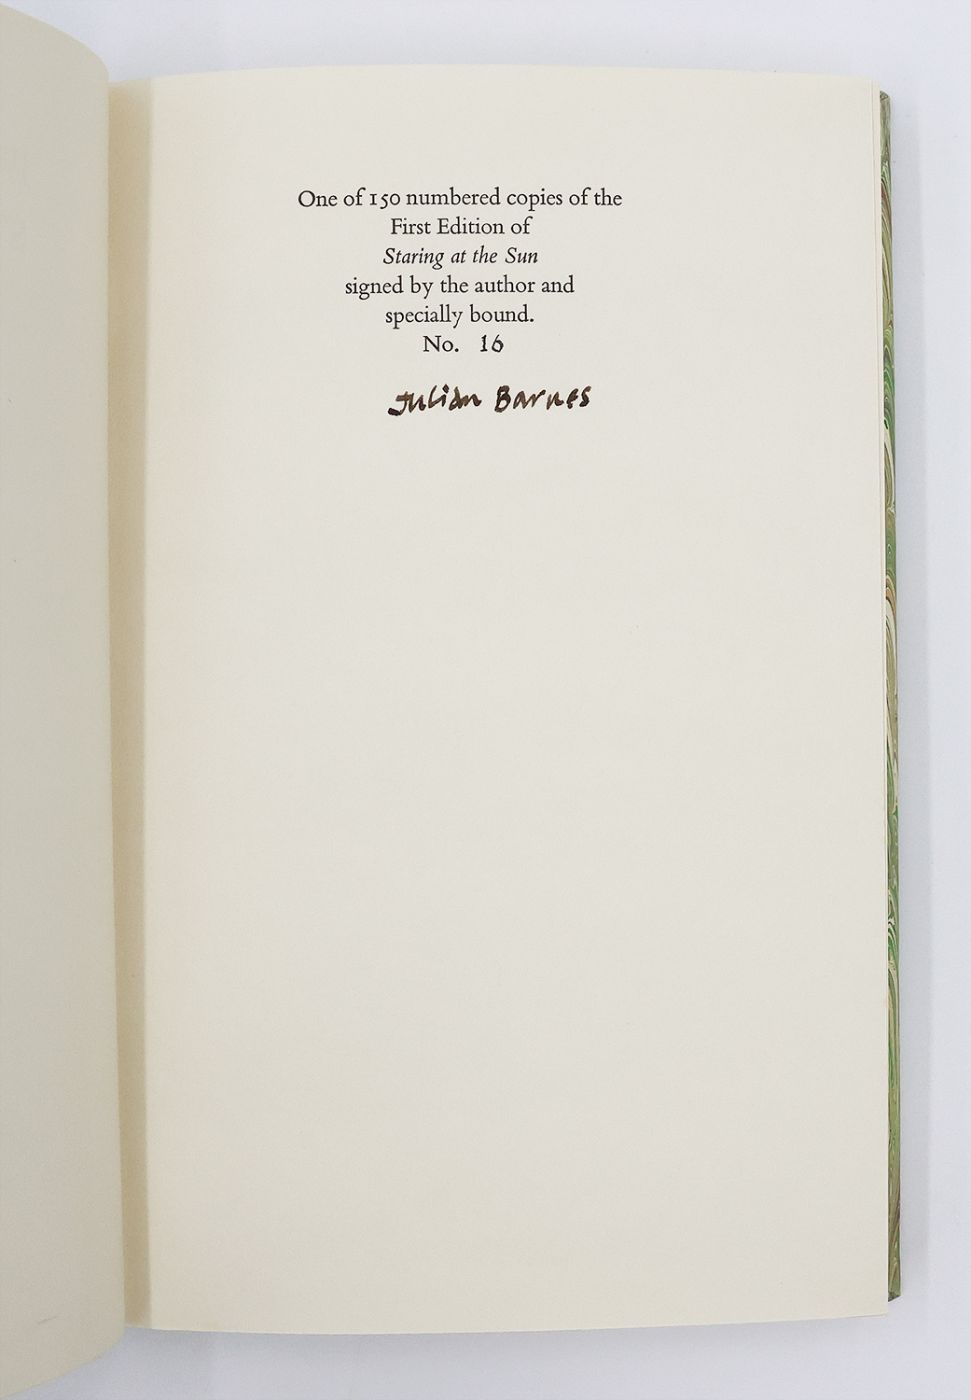 One of 150 numbered copies of the
First Edition of
Staring at the Sun
signed by the author and
specially bound.
No. 16
Julian Barnes